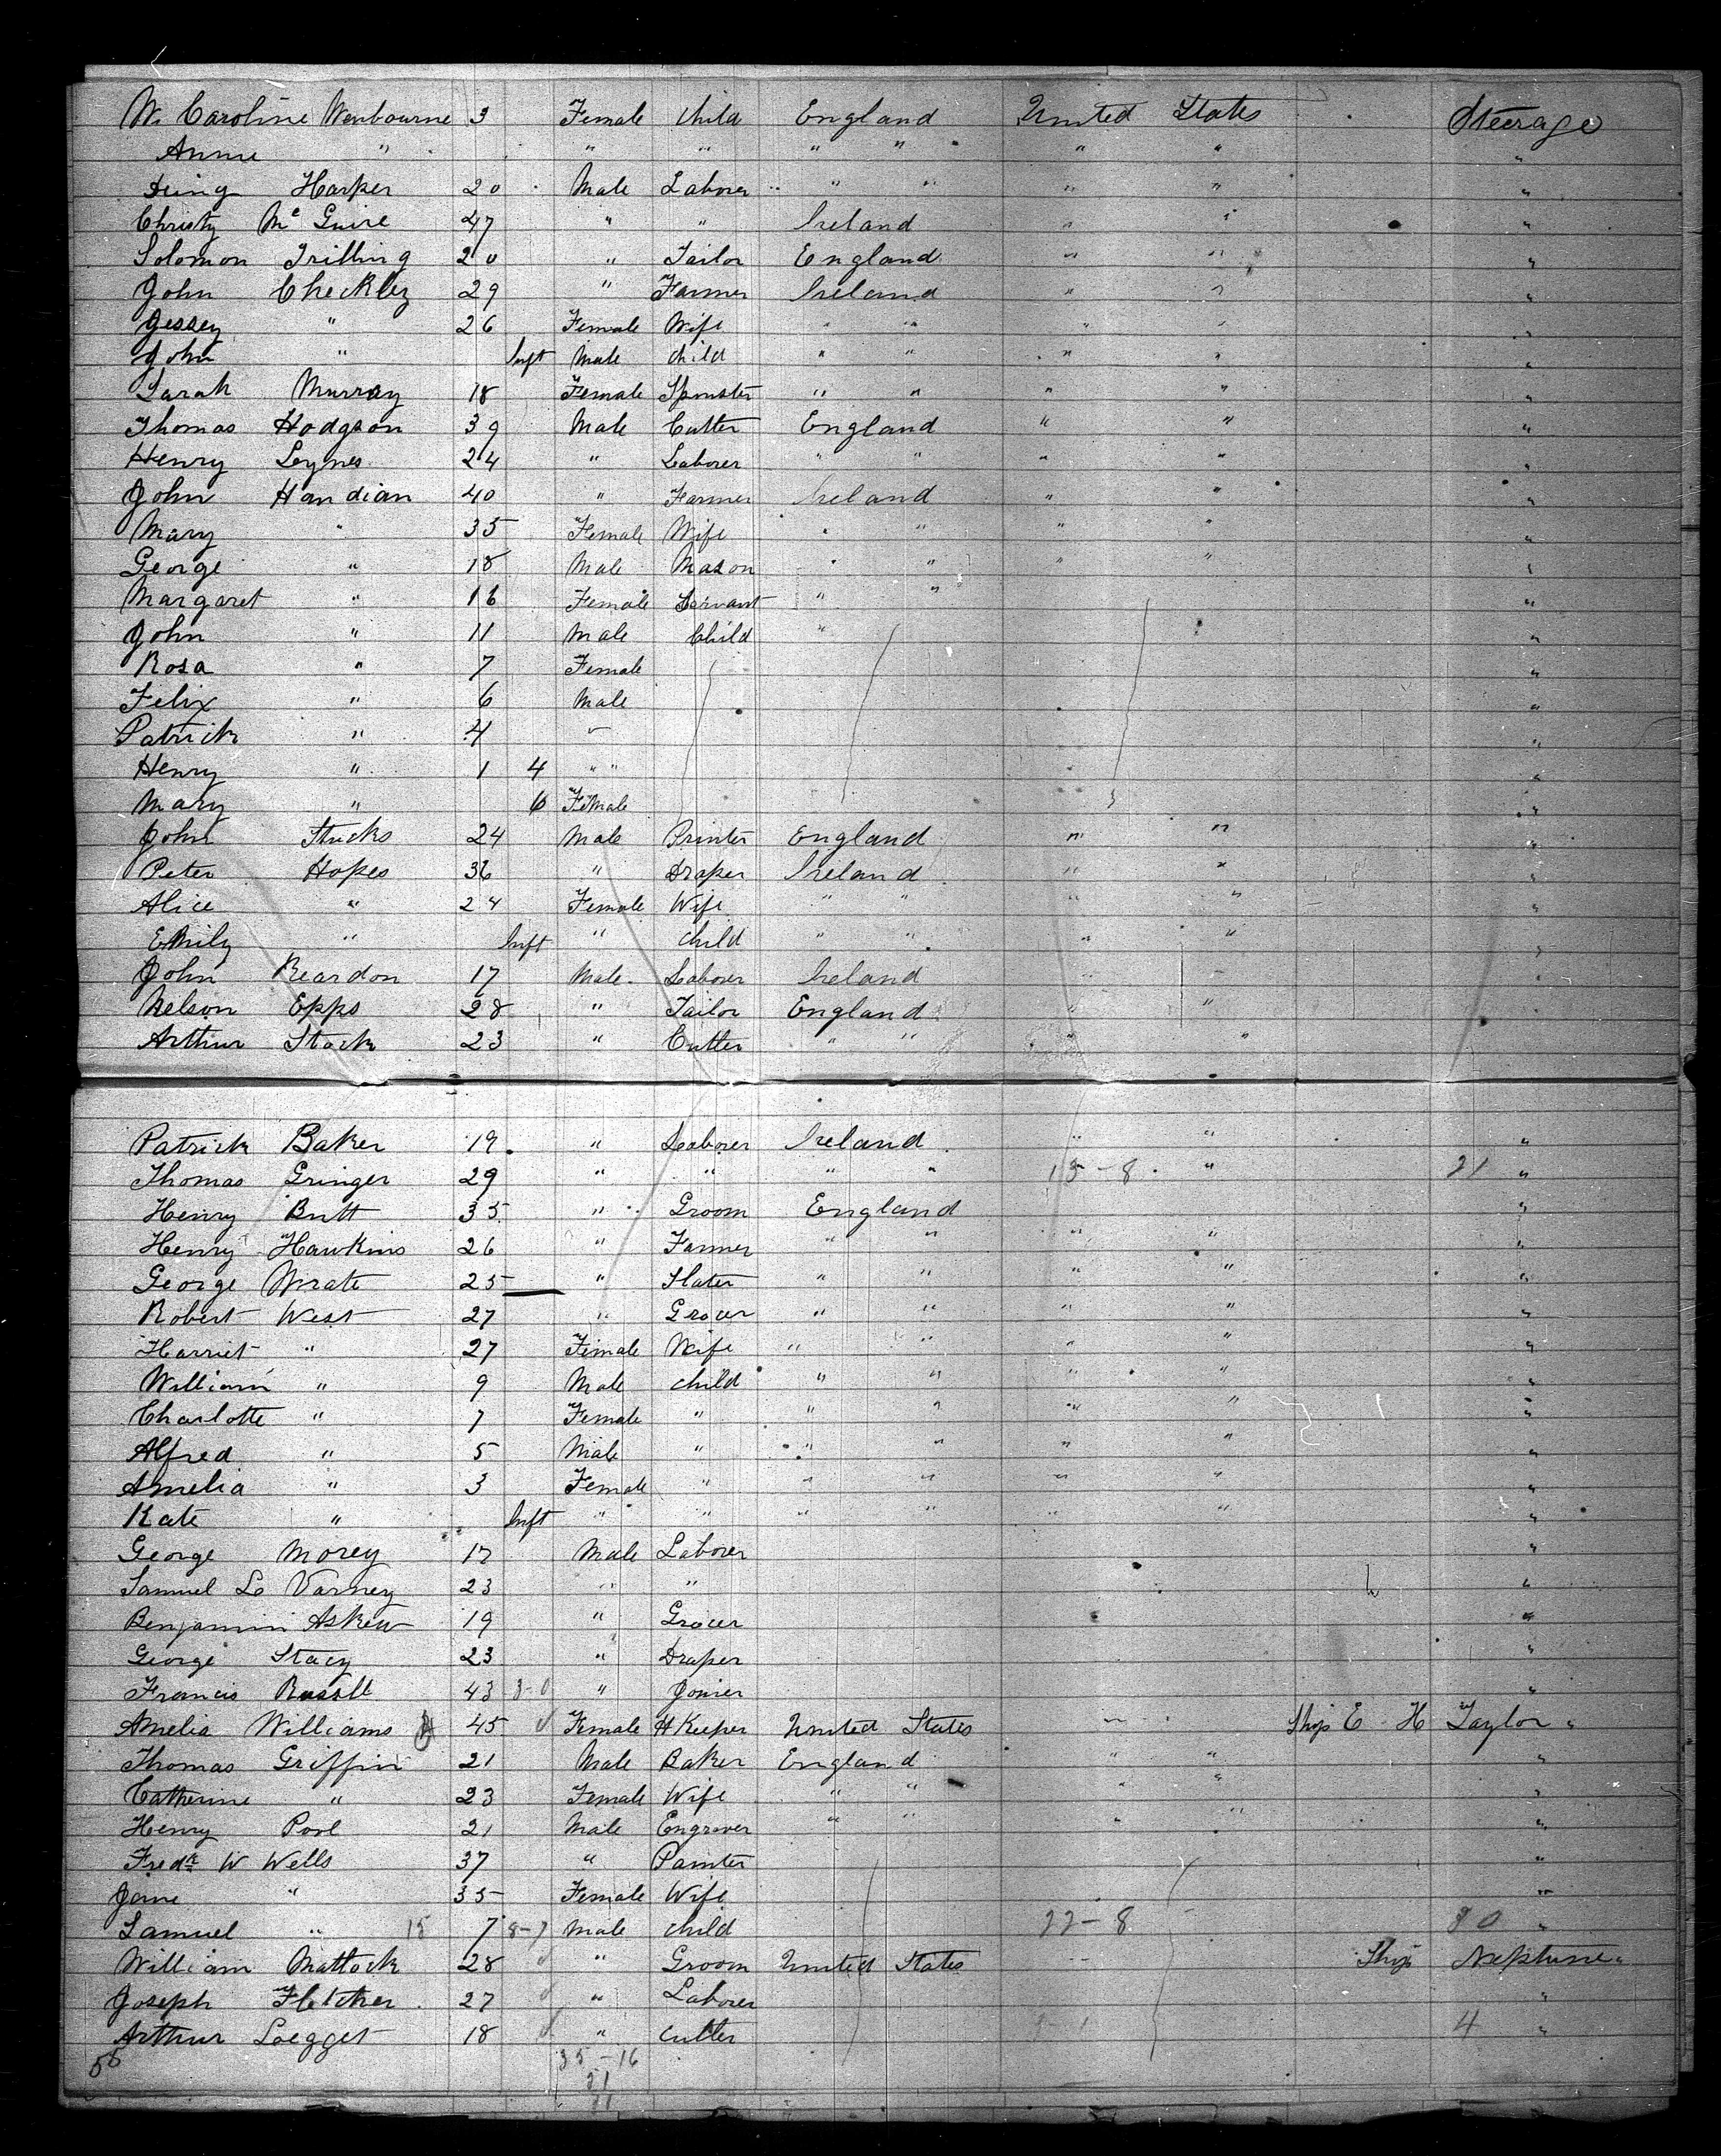 W. Caroline Wenbourne 3 Female Child England United States Steerage
Annie " . " " " " " " "
Harper 20 Male Laborer " " " " "
Christy Mc Guire 47 " " Ireland " " "
Solomon Trilling 20 " Tailor England " " "
John Checkley 29 " Farmer Ireland " " "
Jessey " 26 Female Wife " " " " "
John " Inft Male Child " " " " "
Sarah Murray 18 Female Spinster " " " " "
Thomas Hodgson 39 Male Cutter England " " "
Henry Leynes 24 " Laborer " " " " "
John Handian 40 " Farmer Ireland " " "
Mary " 35 Female Wife " " " " "
George " 18 Male Mason " " " " "
Margaret " 16 Female Servant " " "
John " 11 Male Child " "
Rosa " 7 Female "
Felix " 6 Male "
Patrick " 4 " "
Henry " 1 4 " " "
Mary " 6 Female "
John Stucks 24 Male Printer England " " "
Peter Hopes 36 " Draper Ireland " " "
Alice " 24 Female Wife " " " " "
Emily " Inft " Child " " " " "
John Reardon 17 Male Laborer Ireland " " "
Nelson Epps 28 " Tailor England " " "
Arthur Stock 23 " Cutter " " " "
Patrick Baker 19 " Laborer Ireland " " "
Thomas Gringer 29 " " " " 13-8 " 21 "
Henry Butt 35 " Groom England " " "
Henry Hawkins 26 " Farmer " " " " "
George Wrate 25 " Slater " " " " "
Robert West 27 " Grocer " " " " "
Harriet " 27 Female Wife " " " " "
William " 9 Male Child " " " " "
Charlotte " 7 Female " " " " " "
Alfred " 5 Male " " " " " "
Amelia " 3 Female " " " " " "
Kate " Inft " " " " " " "
George Morey 17 Male Laborer "
Samuel Le Varney 23 " " "
Benjamin Askew 19 " Grocer "
George Stacy 23 " Draper "
Francis Russll 43 8-0 " Joiner "
Amelia Williams 45 Female H Keeper United States " Ship E H Taylor "
Thomas Griffin 21 Male Baker England " " "
Catherine " 23 Female Wife " " " " "
Henry Pool 21 Male Engraver " " " " "
Fredk W Wells 37 " Painter "
Jane " 35 Female Wife "
Samuel " 15 7 8-7 Male Child 22-8 80 "
William Mattock 28 " Groom United States " Ship Neptune "
Joseph Fletcher 27 " Laborer "
Arthur Loegget 18 " Cutter 4 "
35-16
55
21
11